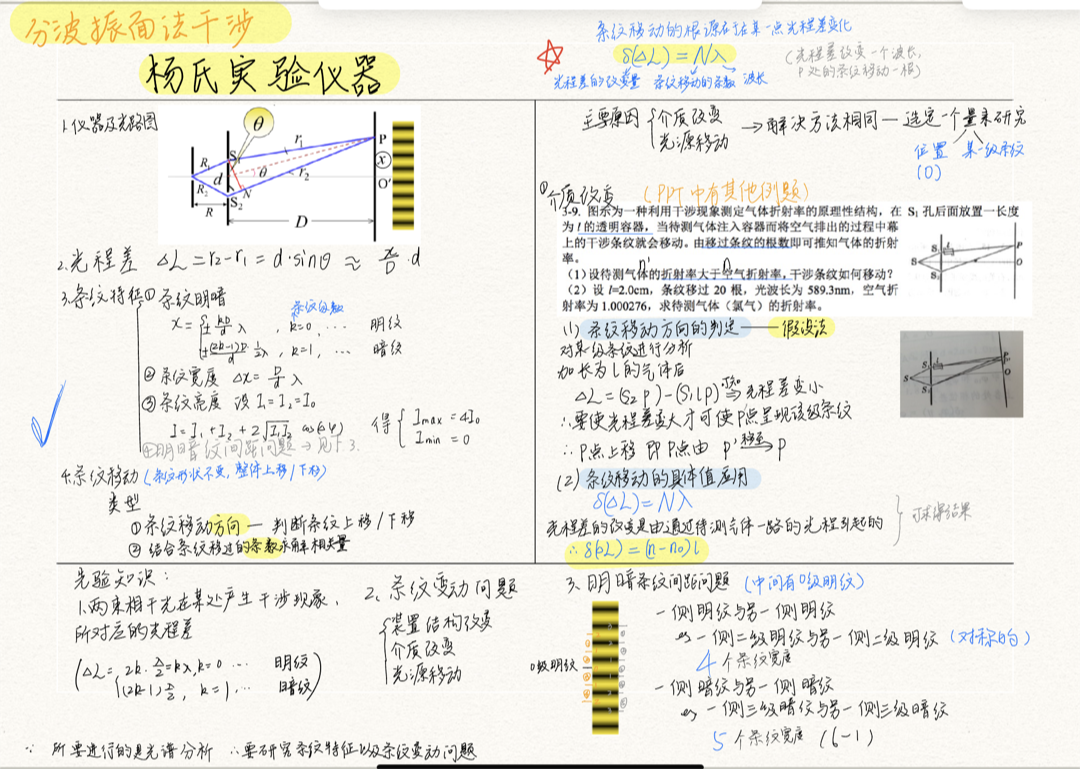 分波振面法干涉
杨氏实验仪器
条纹移动的根源在于某一点光程差变化
δ(ΔL) = Nλ
(光程差改变一个波长,
P处的条纹移动一根)
光程差的改变量 条纹移动的条数 波长
1.仪器及光路图
θ
R₁
R₂
R
d
S₁
S₂
N
r₁
r₂
θ
D
P
x
O'
2.光程差 ΔL = r₂ - r₁ = d·sinθ ≈ x/D · d
3.条纹特征 ① 条纹明暗
条纹级数
x = { ± kD/d λ , k=0, ... 明纹
± (2k-1)D/d · 1/2 λ , k=1, ... 暗纹
② 条纹宽度 Δx = D/d λ
③ 条纹亮度 设 I₁ = I₂ = I₀
I = I₁ + I₂ + 2√I₁I₂ cos(Δφ) 得 { Imax = 4I₀
Imin = 0
④明暗纹间距问题 → 见下3.
4.条纹移动 (条纹形状不变, 整体上移/下移)
类型
① 条纹移动方向 — 判断条纹上移/下移
② 结合条纹移过的条数求解相关量
主要原因 { 介质改变
光源移动
→ 解决方法相同 — 选定一个量来研究
位置 某一级条纹
(0)
① 介质改变 (PPT中有其他例题)
3-9. 图示为一种利用干涉现象测定气体折射率的原理性结构，在 S₁ 孔后面放置一长度
为 l 的透明容器，当待测气体注入容器而将空气排出的过程中幕
上的干涉条纹就会移动。由移过条纹的根数即可推知气体的折射
率。
n' n
（1）设待测气体的折射率大于空气折射率，干涉条纹如何移动？
（2）设 l=2.0cm，条纹移过 20 根，光波长为 589.3nm，空气折
射率为 1.000276，求待测气体（氯气）的折射率。
S₁
l
S
S₂
P
O
(1) 条纹移动方向的判定 —— 假设法
对某级条纹进行分析
加长为l的气体后
ΔL = (S₂P) - (S₁lP) ⇒ 光程差变小
∴要使光程差变大才可使P点呈现该级条纹
∴ P点上移 即P点由 P' 移至 P
(2) 条纹移动的具体值应用
δ(ΔL) = Nλ
光程差的改变是由通过待测气体一路的光程引起的
∴ δ(ΔL) = (n-n₀)l
} 可求得结果
先验知识:
1.两束相干光在某处产生干涉现象,
所对应的光程差
(ΔL = { 2k·λ/2 = kλ, k=0 ... 明纹
(2k-1)λ/2 , k=1, ... 暗纹)
2、条纹变动问题
{ 装置结构改变
介质改变
光源移动
∵ 所要进行的是光谱分析 ∴要研究条纹特征以及条纹变动问题
3.明暗条纹间距问题 (中间有0级明纹)
0级明纹
一侧明纹与另一侧明纹
eg 一侧二级明纹与另一侧二级明纹 (对称的)
4个条纹宽度
一侧暗纹与另一侧暗纹
eg 一侧三级暗纹与另一侧三级暗纹
5个条纹宽度 (6-1)